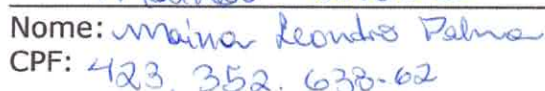 Nome: Maina Leondro Palma
CPF: 423.352.638-62